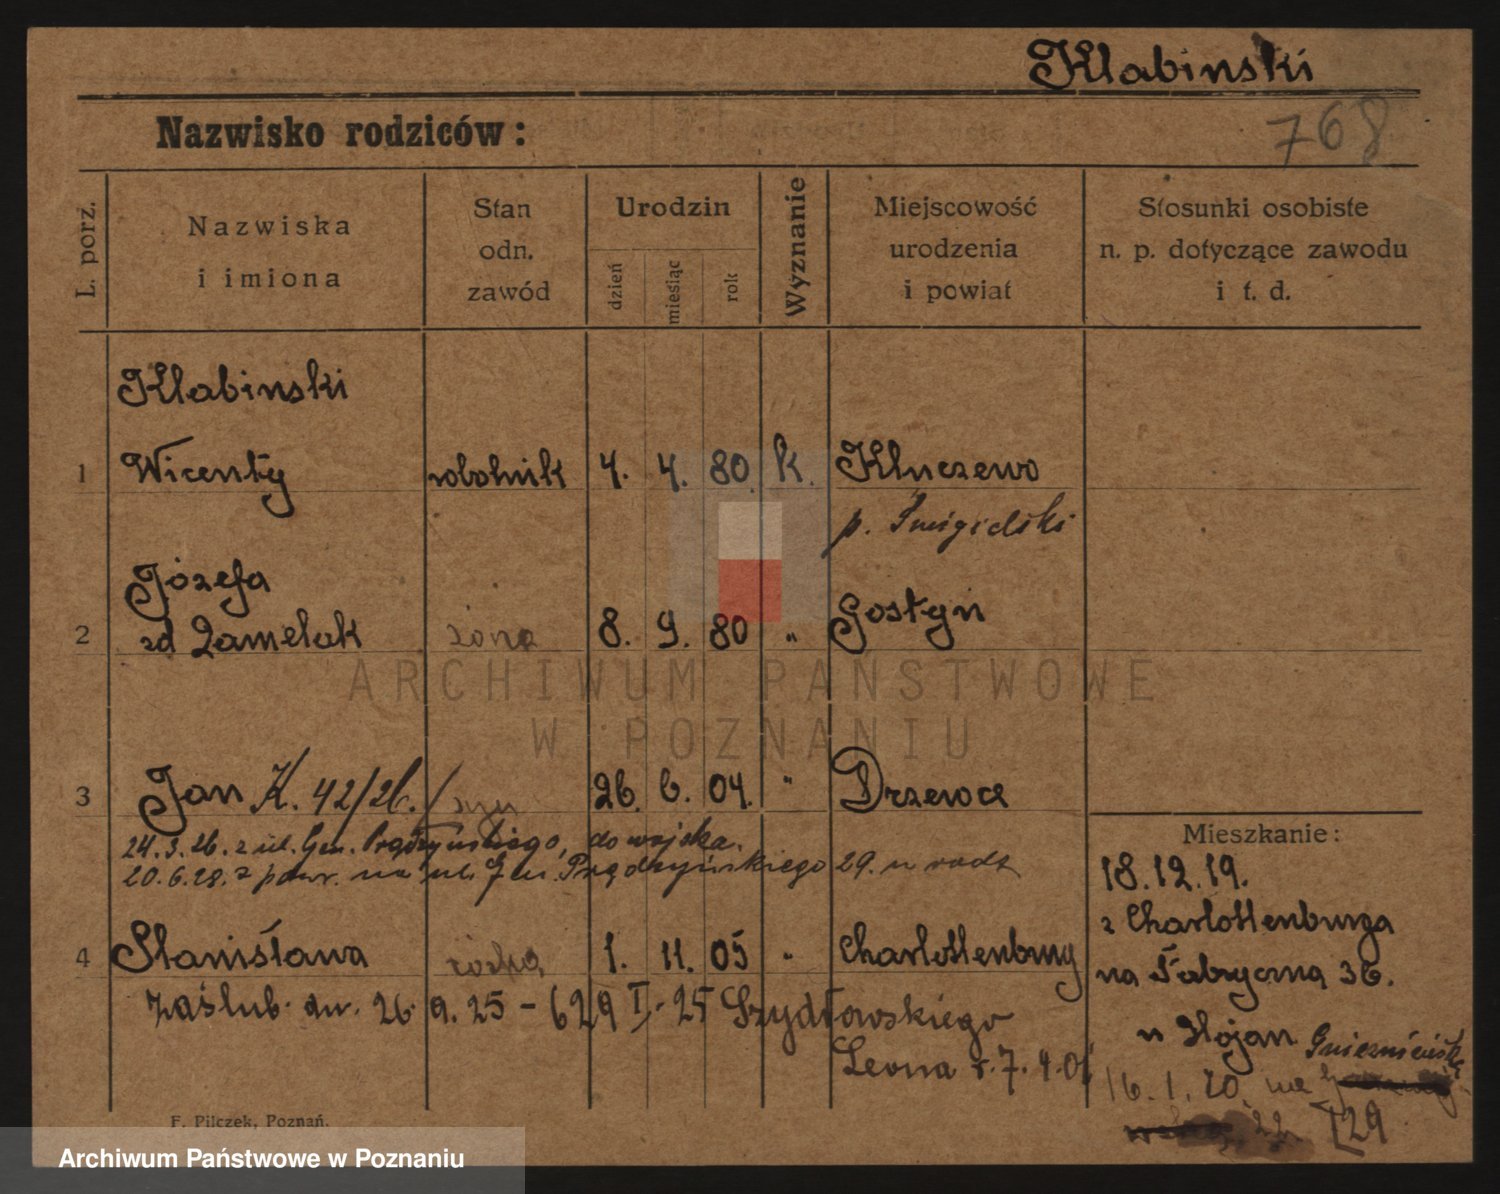 Klabinski
768
Nazwisko rodziców:
L. porz.
Nazwiska
i imiona
Stan
odn.
zawód
Urodzin
dzień
miesiąc
rok
Wyznanie
Miejscowość
urodzenia
i powiat
Stosunki osobiste
n. p. dotyczące zawodu
i t. d.
Klabinski
1 Wicenty robotnik 4. 4. 80. k. Kluczewo
p. Śmigielski
Józefa
2 zd Zamelak żona 8. 9. 80 „ Gostyn
ARCHIWUM PAŃSTWOWE
W POZNANIU
3 Jan K. 42/26. syn 26. 6. 04. „ Drzewce
24.3.26. z ul. Gen. Prądzyńskiego, do wojska.
20.6.28. z powr. na ul. Gen. Prądzyńskiego 29. u rodz
4 Stanisława córka 1. 11. 05 „ Charlottenburg
zaślub. dn. 26. 9. 25 - 629 I. 25 Szydłowskiego
Leona r. 7. 4. 01
Mieszkanie:
18.12.19.
z Charlottenburga
na Fabryczną 36.
u Hojan Gnieźnieńską
16. 1. 20. na
22 729
F. Pilczek, Poznań.
Archiwum Państwowe w Poznaniu